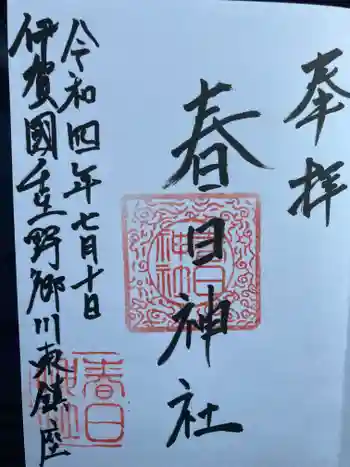 奉拝
春日神社
令和四年七月十日
伊賀國壬生野郷川東鎮座
春日神社
春日神社